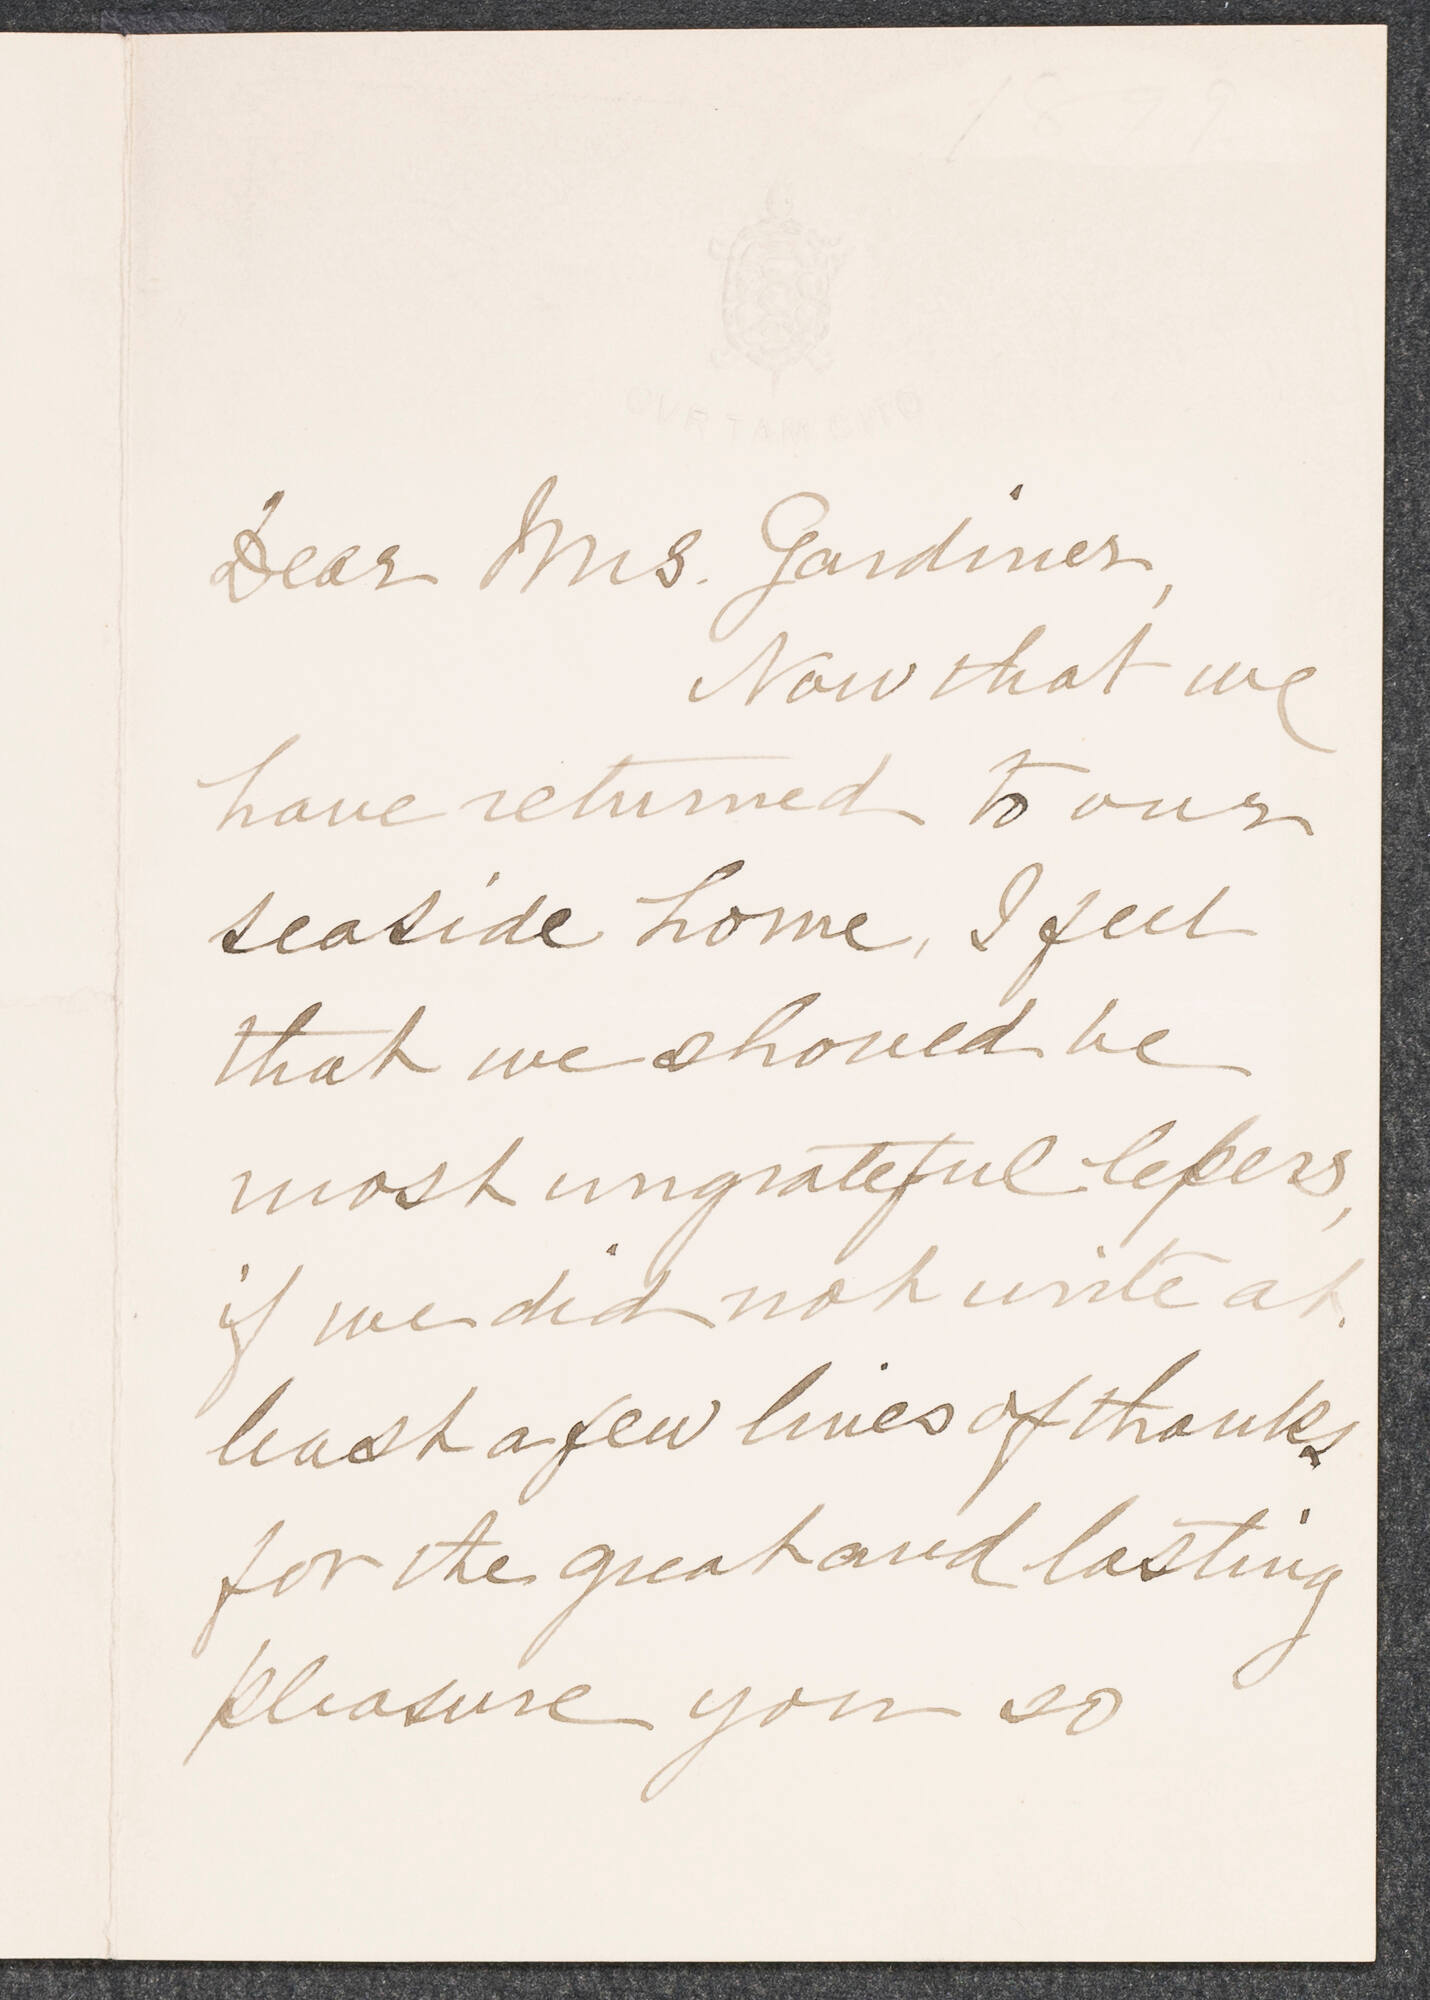 1899
Dear Mrs. Gardiner,
Now that we
have returned to our
seaside home, I feel
that we should be
most ungrateful lepers,
if we did not write at
least a few lines of thanks
for the great and lasting
pleasure you so